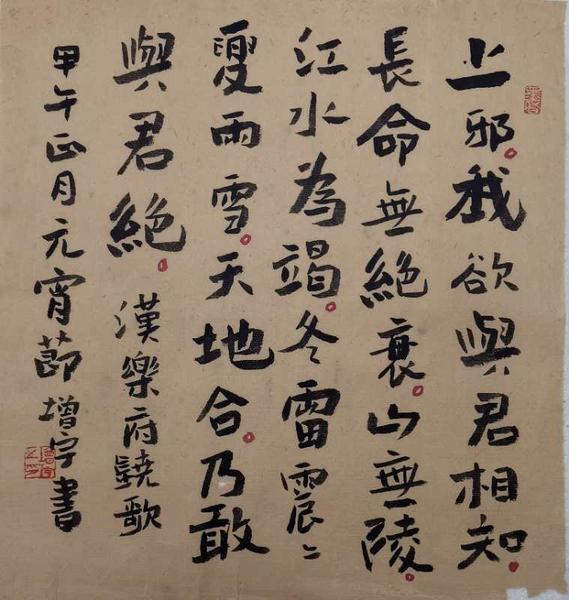 上邪。我欲與君相知。
長命無絕衰。山無陵。
江水為竭。冬雷震〻
夏雨雪。天地合。乃敢
與君絕。漢樂府鐃歌
甲午正月元宵節增字書